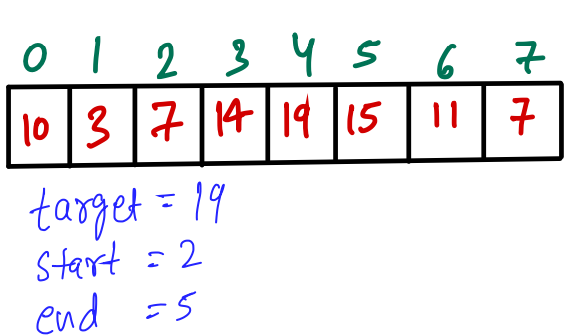 0 1 2 3 4 5 6 7
10 3 7 14 19 15 11 7
target = 19
start = 2
end = 5